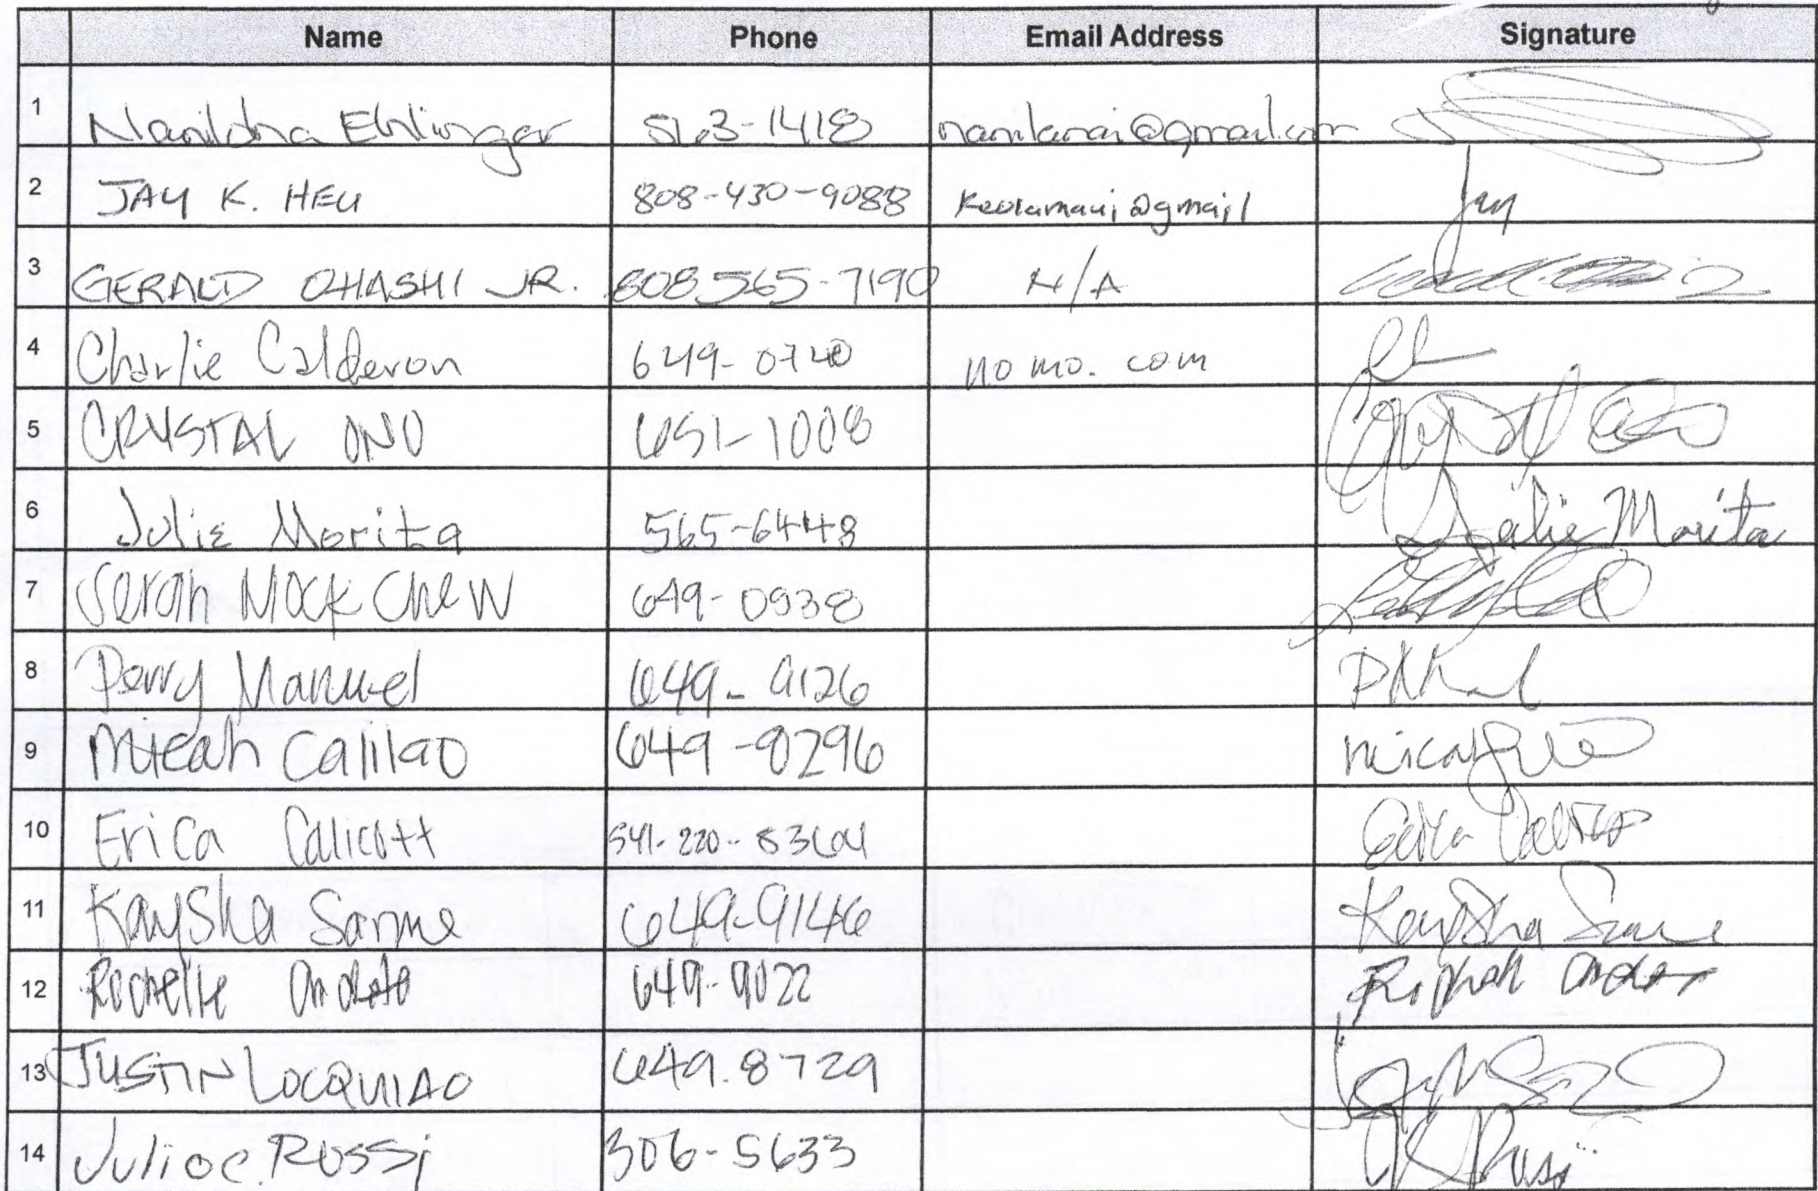 Name Phone Email Address Signature
1 Ehlinger 563-1418 nanilanai@gmail.com
2 JAY K. HEU 808-430-9088 Keolamaui@gmail Jay
3 GERALD OHASHI JR. 808 565-7190 N/A
4 Charlie Calderon 649-0740 no mo. com
5 CRYSTAL ONO 651-1008
6 Julie Morita 565-6448 Julie Morita
7 Serah Mock Chew 649-0938
8 Perry Manuel 649-9126
9 Micah Calilao 649-9296
10 Erica Calicott 541-220-8364
11 Kaysha Sarme 649-9146 Kaysha Sarme
12 Rochelle 649-9022
13 JUSTIN LOCQUIAO 649.8729
14 Rossi 306-5633